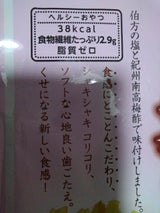 ヘルシーおやつ
38kcal
食物繊維たっぷり2.9g
脂質ゼロ
伯方の塩と紀州南高梅酢で味付けしました。
食感にとことんこだわり、
シャキシャキ コリコリ、
ソフトな心地良い歯ごたえ。
くせになる新しい食感!